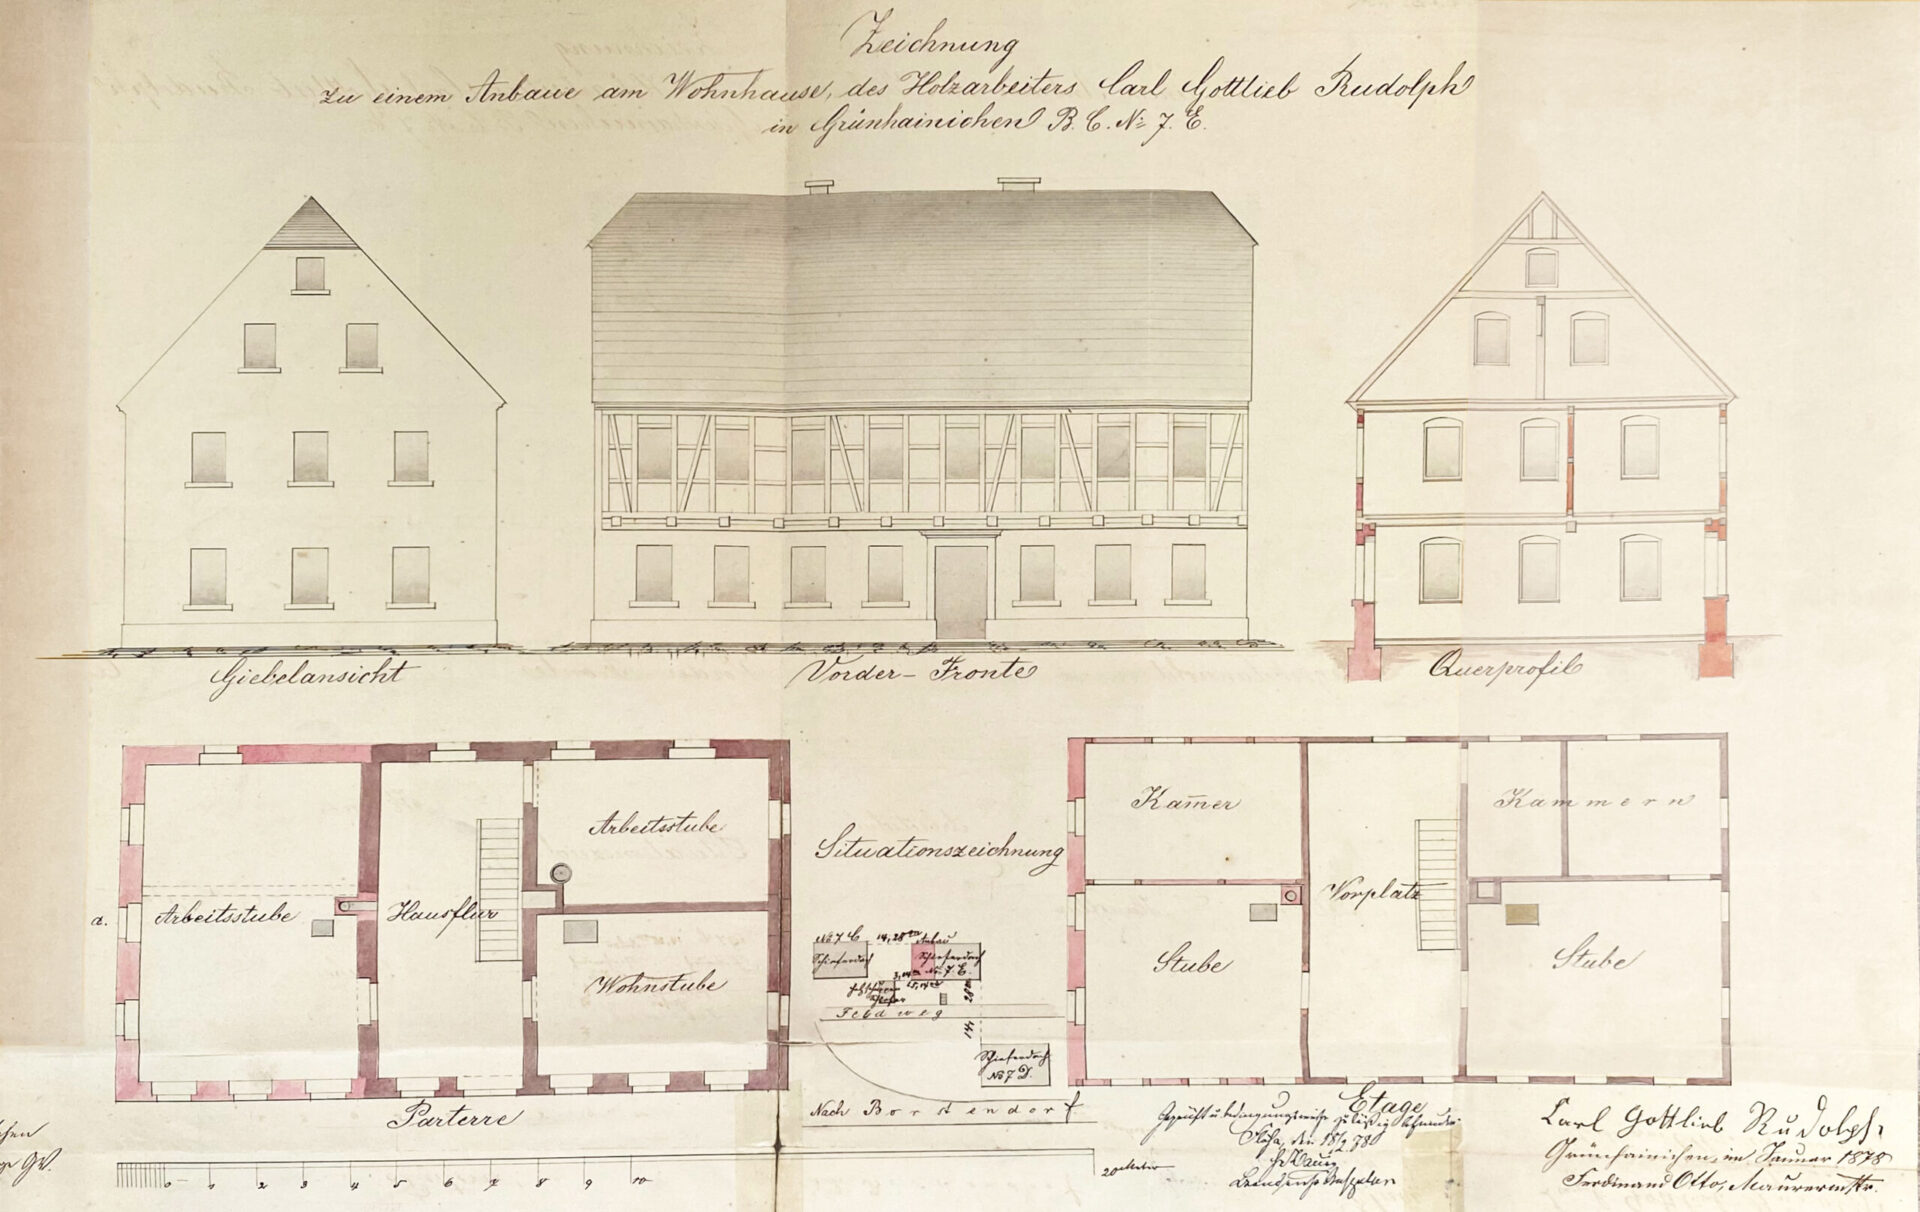 Zeichnung
zu einem Anbaue am Wohnhause, des Holzarbeiters Carl Gottlieb Rudolph
in Grünhainichen B. C. № 7. E.
Giebelansicht
Vorder-Fronte
Querprofil
Arbeitsstube
Kam̄er
Kammern
Situationszeichnung
a.
Arbeitsstube
Hausflur
Vorplatz
№ 7 C
14,28 m
Anbau
Schieferdach
Schieferdach
№ 7. E.
Wohnstube
Stube
Stube
Feldweg
Schieferdach
№ 7 D.
Nach Borstendorf
Parterre
Etage
Geprüft u. bedingungsweise zulässig befunden
Flöha, den 18/2 78
Carl Gottlieb Rudolph.
Grünhainichen, im Januar 1878
Ferdinand Otto, Maurermstr.
0 1 2 3 4 5 6 7 8 9 10
20 Meter